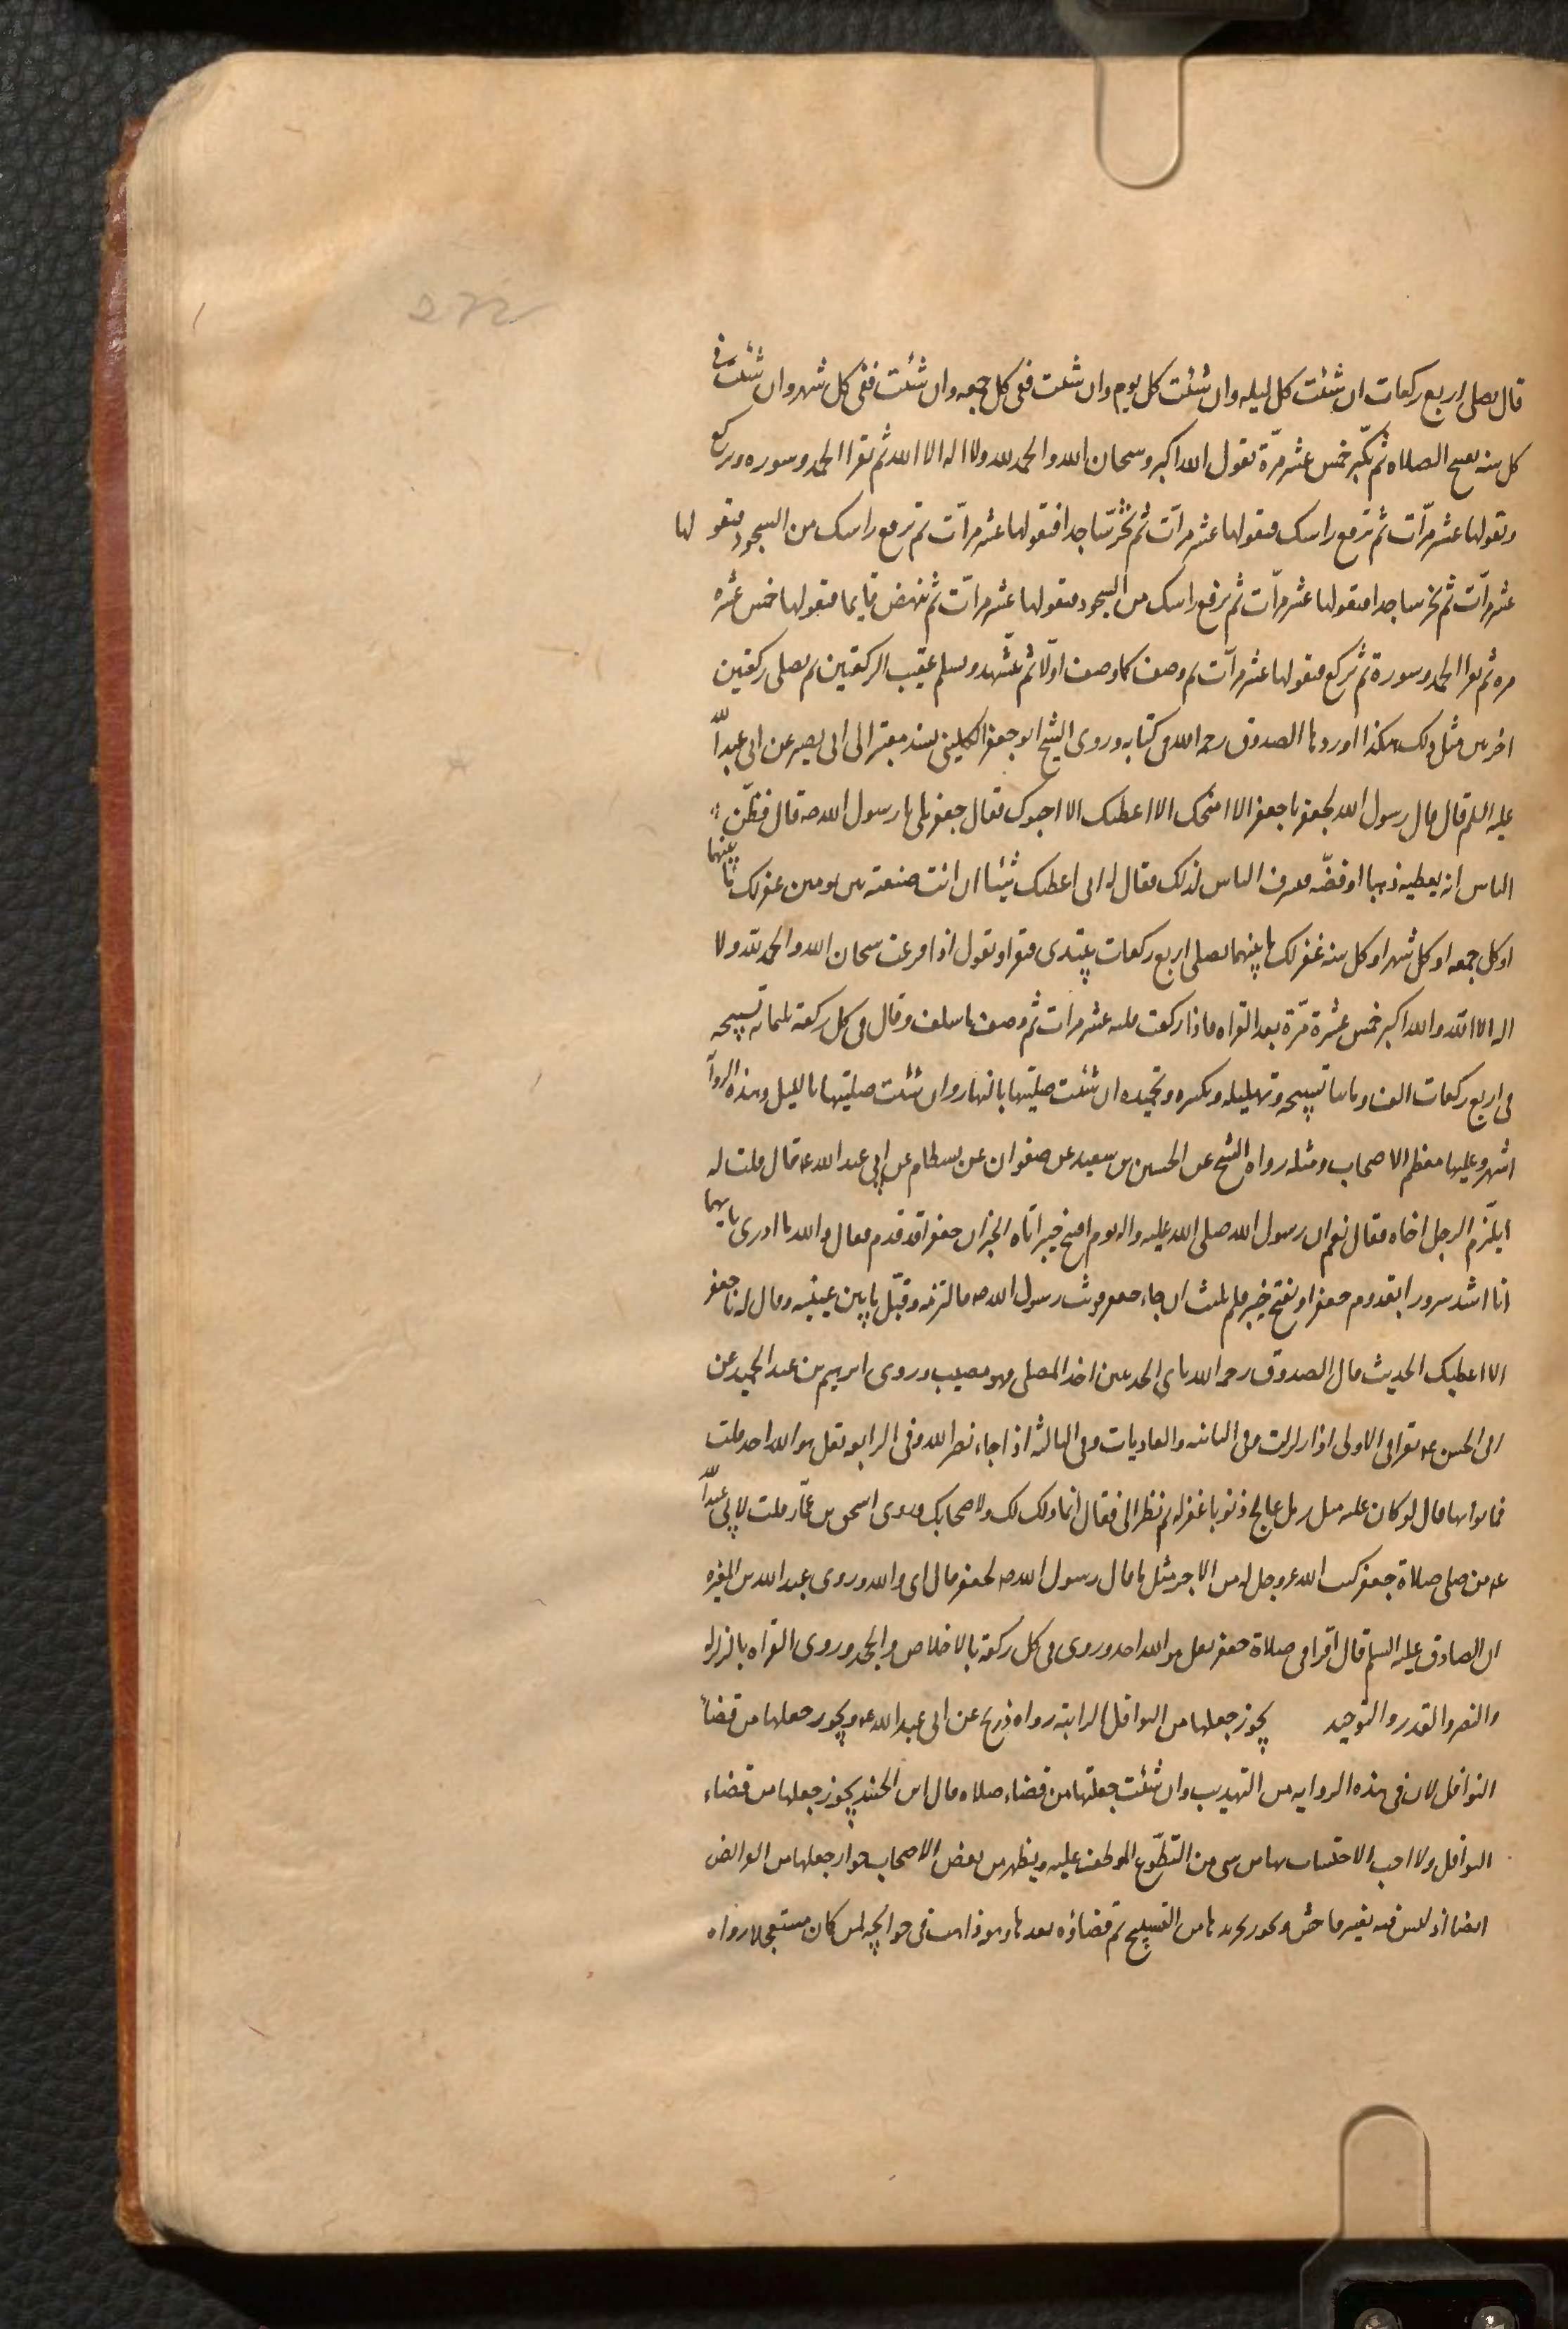 قال تصلي اربع ركعات ان شئت كل ليله وان شئت كل يوم وان شئت ففي كل جمعه وان شئت ففي كل شهر وان شئت في
كل سنه تفتتح الصلاه ثم تكبّر خمس عشر مرّة تقول الله اكبر وسبحان الله والحمد لله ولا اله الا الله ثم تقرا الحمد وسوره وتركع
وتقولها عشر مرّات ثم ترفع راسك فتقولها عشر مرّات ثم تخرّ ساجدا فتقولها عشر مرّات ثم ترفع راسك من السجود فتقولها
عشر مرّات ثم تخر ساجدا فتقولها عشر مرّات ثم ترفع راسك من السجود فتقولها عشر مرّات ثم تنهض قايما فتقولها خمس عشره
مره ثم تقرا الحمد وسورة ثم تركع فتقولها عشر مرّات ثم وصف كما وصف اوّلا ثم تشهد وسلم عقيب الركعتين ثم يصلي ركعتين
اخرين مثل ذلك هكذا اوردها الصدوق رحمه الله في كتابه وروى الشيخ ابو جعفر الكليني بسند معتبر الى ابي بصير عن ابي عبد الله
عليه السلم قال قال رسول الله لجعفر يا جعفر الا امنحك الا اعطيك الا احبوك فقال جعفر بلى يا رسول الله ص قال فظنّ
الناس انه يعطيه ذهبا او فضّه فتشرف الناس لذلك فقال له اني اعطيك شيئا ان انت صنعته بين يومين غفر لك ما بينهما
او كل جمعه او كل شهر او كل سنه غفر لك ما بينهما تصلي اربع ركعات تبتدى فتقرا وتقول اذا فرغت سبحان الله والحمد لله ولا
اله الا الله والله اكبر خمس عشرة مّرة بعد القراه فاذا ركعت قلته عشر مرات ثم وصف ما سلف وقال في كل ركعة ثلثمائه تسبيحه
في اربع ركعات الف ومائتا تسبيحه وتهليله وتكبيره وتحميده ان شئت صليتها بالنهار وان شئت صليتها بالليل وهذه الروا
اشهر وعليها معظم الاصحاب ومثله رواه الشيخ عن الحسين بن سعيد عن صفوان عن بسطام عن ابي عبد الله ع قال قلت له
ايلتزم الرجل اخاه فقال نعم ان رسول الله صلى الله عليه واله يوم افتتح خيبر اتاه الخبر ان جعفرا قد قدم فقال والله ما ادرى بايهما
انا اشد سرورا بقدوم جعفر او بفتح خيبر فلم يلبث ان جاء جعفر فوثب رسول الله ص فالتزمه وقبّل ما بين عينيه وقال له يا جعفر
الا اعطيك الحديث قال الصدوق رحمه الله باي الحديثين اخذ المصلى فهو مصيب وروى ابرهيم بن عبد الحميد عن
ابي الحسن ع تقرا في الاولى اذا زلزلت وفي الثانيه والعاديات وفي الثالثه اذا جاء نصر الله وفي الرابعه قل هو الله احد قلت
فما ثوابها قال لو كان عليه مثل رمل عالج ذنوبا غفر له ثم نظر الى فقال انما ذلك لك ولاصحابك وروى اسحق بن عمّار قلت لابي عبد الله
ع من صلى صلاة جعفر كتب الله عز وجل له من الاجر مثل ما قال رسول الله ص لجعفر قال اى والله وروى عبد الله بن المغيره
ان الصادق عليه السلم قال اقرا في صلاة جعفر بقل هو الله احد وروى في كل ركعة بالاخلاص والجحد وروى القراه بالزلزله
والنصر والقدر والتوحيد يجوز جعلها من النوافل الراتبة رواه ذريح عن ابي عبد الله ع ويجوز جعلها من قضا
النوافل لان في هذه الروايه من التهذيب وان شئت جعلتها من قضاء صلاه وقال ابن الجنيد يجوز جعلها من قضاء
النوافل ولا احب الاحتساب بها من شى من التطوّع الموظف عليه ويظهر من بعض الاصحاب جواز جعلها من الفرائض
ايضا اذ ليس فيه تغيير فاحش ويجوز تجريدها من التسبيح ثم قضاؤه بعدها وهو ذاهب في حوائجه لمن كان مستعجلا رواه